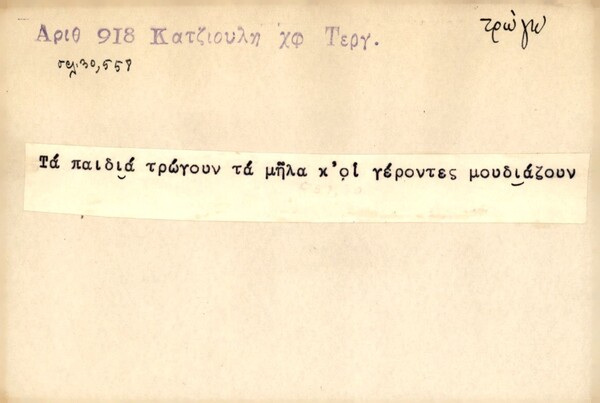 Αριθ 918 Κατζιουλη χφ Τεργ.
τρώγω
σελ. 30,558
Τά παιδι̮ά τρώγουν τά μῆλα κ’ο̣ἱ γέροντες μουδι̮άζουν